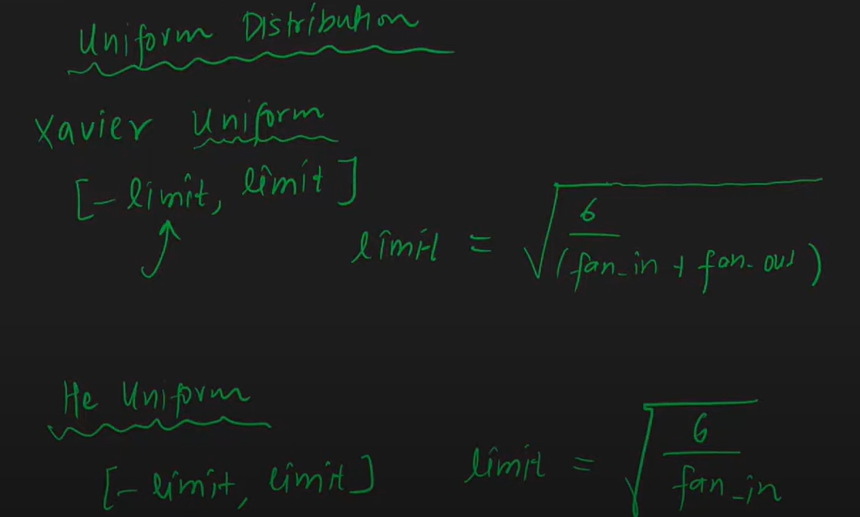 Uniform Distribution
Xavier Uniform
[- limit, limit]
limit = √(6 / (fan_in + fan_out))
He Uniform
[- limit, limit] limit = √(6 / fan_in)